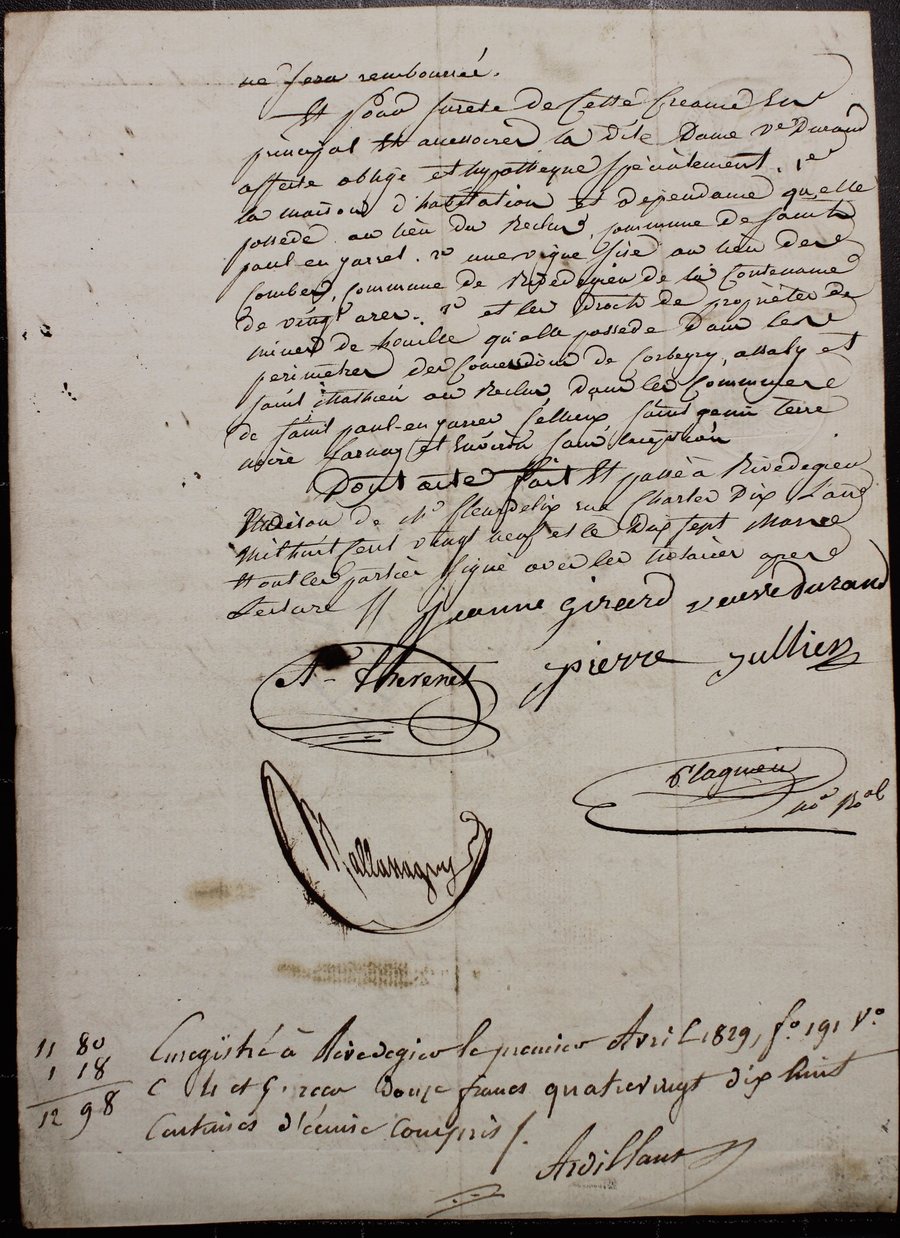 ne sera remboursée.
Et pour sureté de Cette Creance En
principal Et accessoires la dite Dame Ve Durand
affecte oblige et hypotheque spécialement. 1e
la maison d'habitation et dependance qu'elle
possede au lieu du Reclus, commune de saint
paul en jarret. 2e une vigne sise au lieu des
Combes, Commune de Rivedegier de la Contenance
de vingt ares. 3e et les droits de propriétés de
mines de houille qu'elle possede Dans les
perimetres des Concessions de Corbeyre, assaly et
saint Mathieu au Reclus, Dans les Communes
de saint paul-en-jarret Cellieux saint genis terre
noire farnay et Environ sans Exception
Dont acte fait Et passé à Rivedegier
Maison de Mr fleurdelix rue Charles Dix L'an
Mil huit Cent vingt neuf et le Dix sept Mars
Et ont les parties signé avec les notaires apres
Lecture //
jeanne Girard veuve durand
An Thevenet
pierre jullien
Plagnieu
no Roal
Mallassagny
11 80
1 18
12 98
Enregistré à Rivedegier le premier Avril 1829, fo 191 Vo
C 4 et 5. reçu Douze francs quatrevingt dix huit
Centimes dixième Compris /.
Ardillant